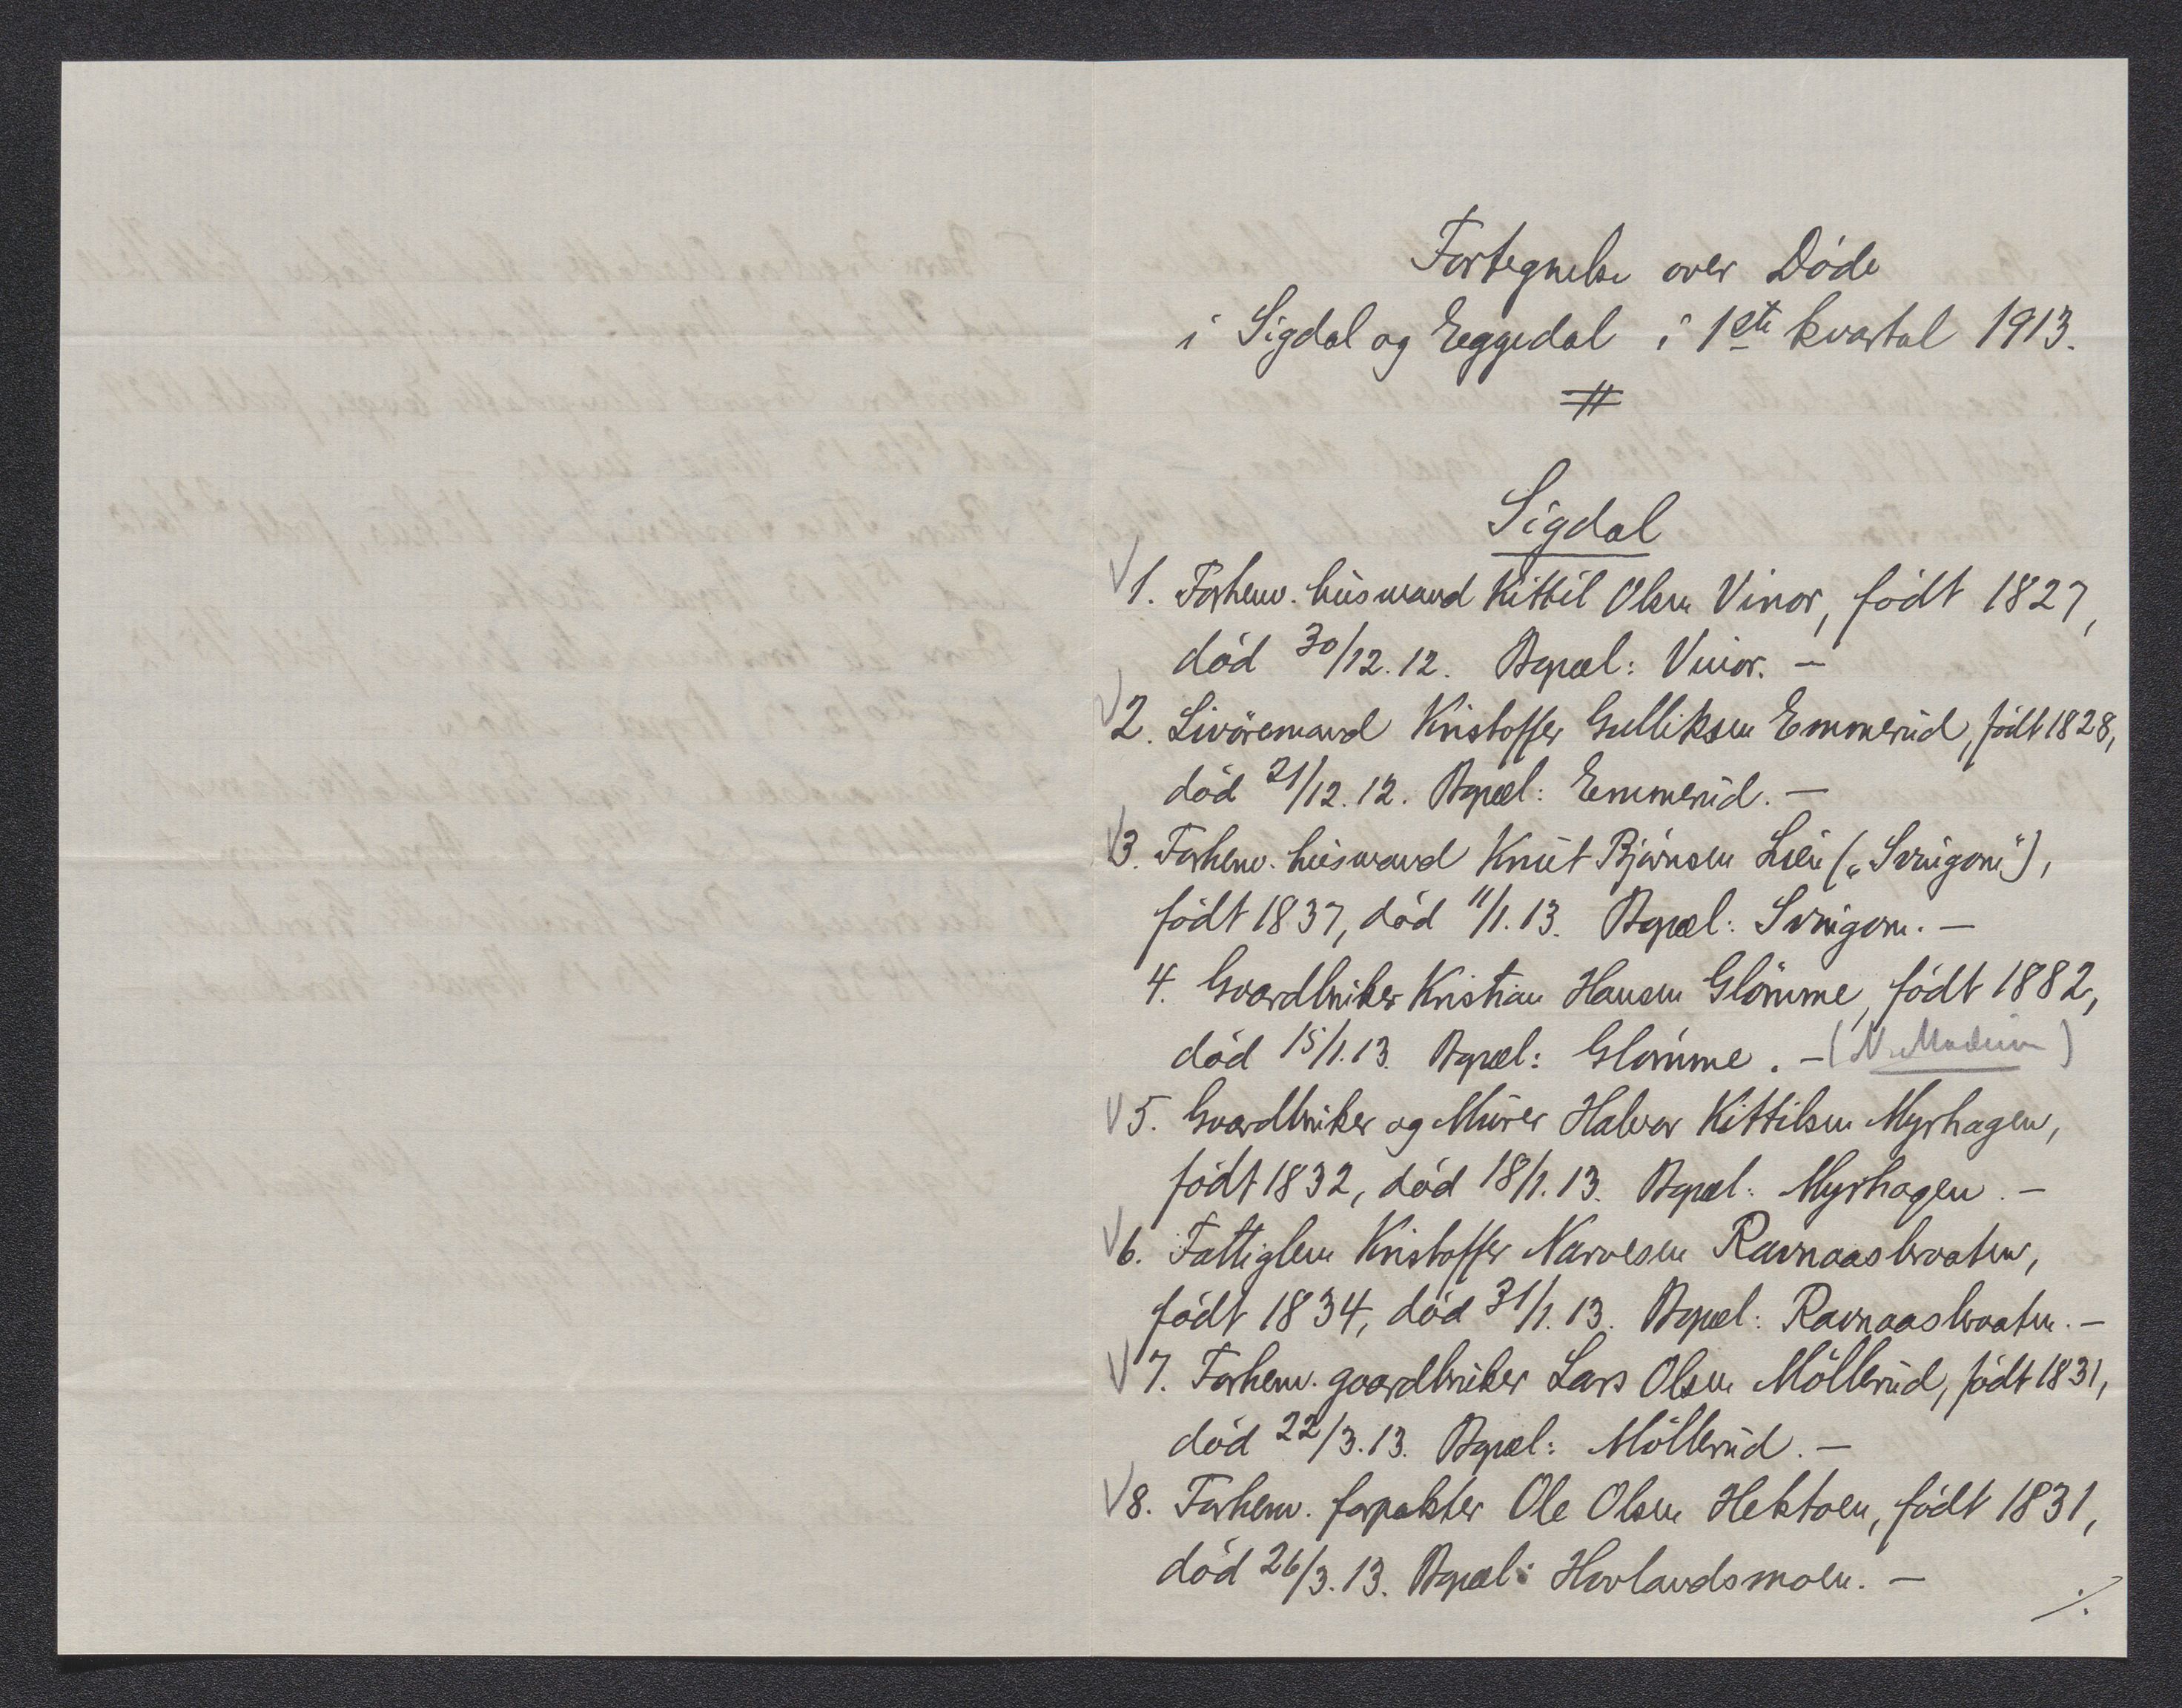 Fortegnelse over Døde
i Sigdal og Eggedal i 1ste kvartal 1913.
Sigdal
1. Forhenv. husmand Kittil Olsen Vinor, født 1827,
død 30/12. 12. Bopæl: Vinor. —
2. Livøremand Kristoffer Gulliksen Emmerud, født 1828,
død 21/12. 12. Bopæl: Emmerud. —
3. Forhenv. husmand Knut Bjørnsen Lien („Svingom"),
født 1837, død 11/1. 13. Bopæl: Svingom. —
4. Gaardbruker Kristian Hansen Glømme, født 1882,
død 15/1. 13. Bopæl: Glømme. — (N. Modum)
5. Gaardbruker og Murer Halvor Kittilsen Myrhagen,
født 1832, død 18/1. 13. Bopæl: Myrhagen. —
6. Fattiglem Kristoffer Narvesen Ravnaasbraaten,
født 1834, død 31/1. 13. Bopæl: Ravnaasbraaten. —
7. Forhenv. gaardbruker Lars Olsen Møllerud, født 1831,
død 22/3. 13. Bopæl: Møllerud. —
8. Forhenv. forpakter Ole Olsen Hektoen, født 1831,
død 26/3. 13. Bopæl: Hovlandsmoen. —
./.